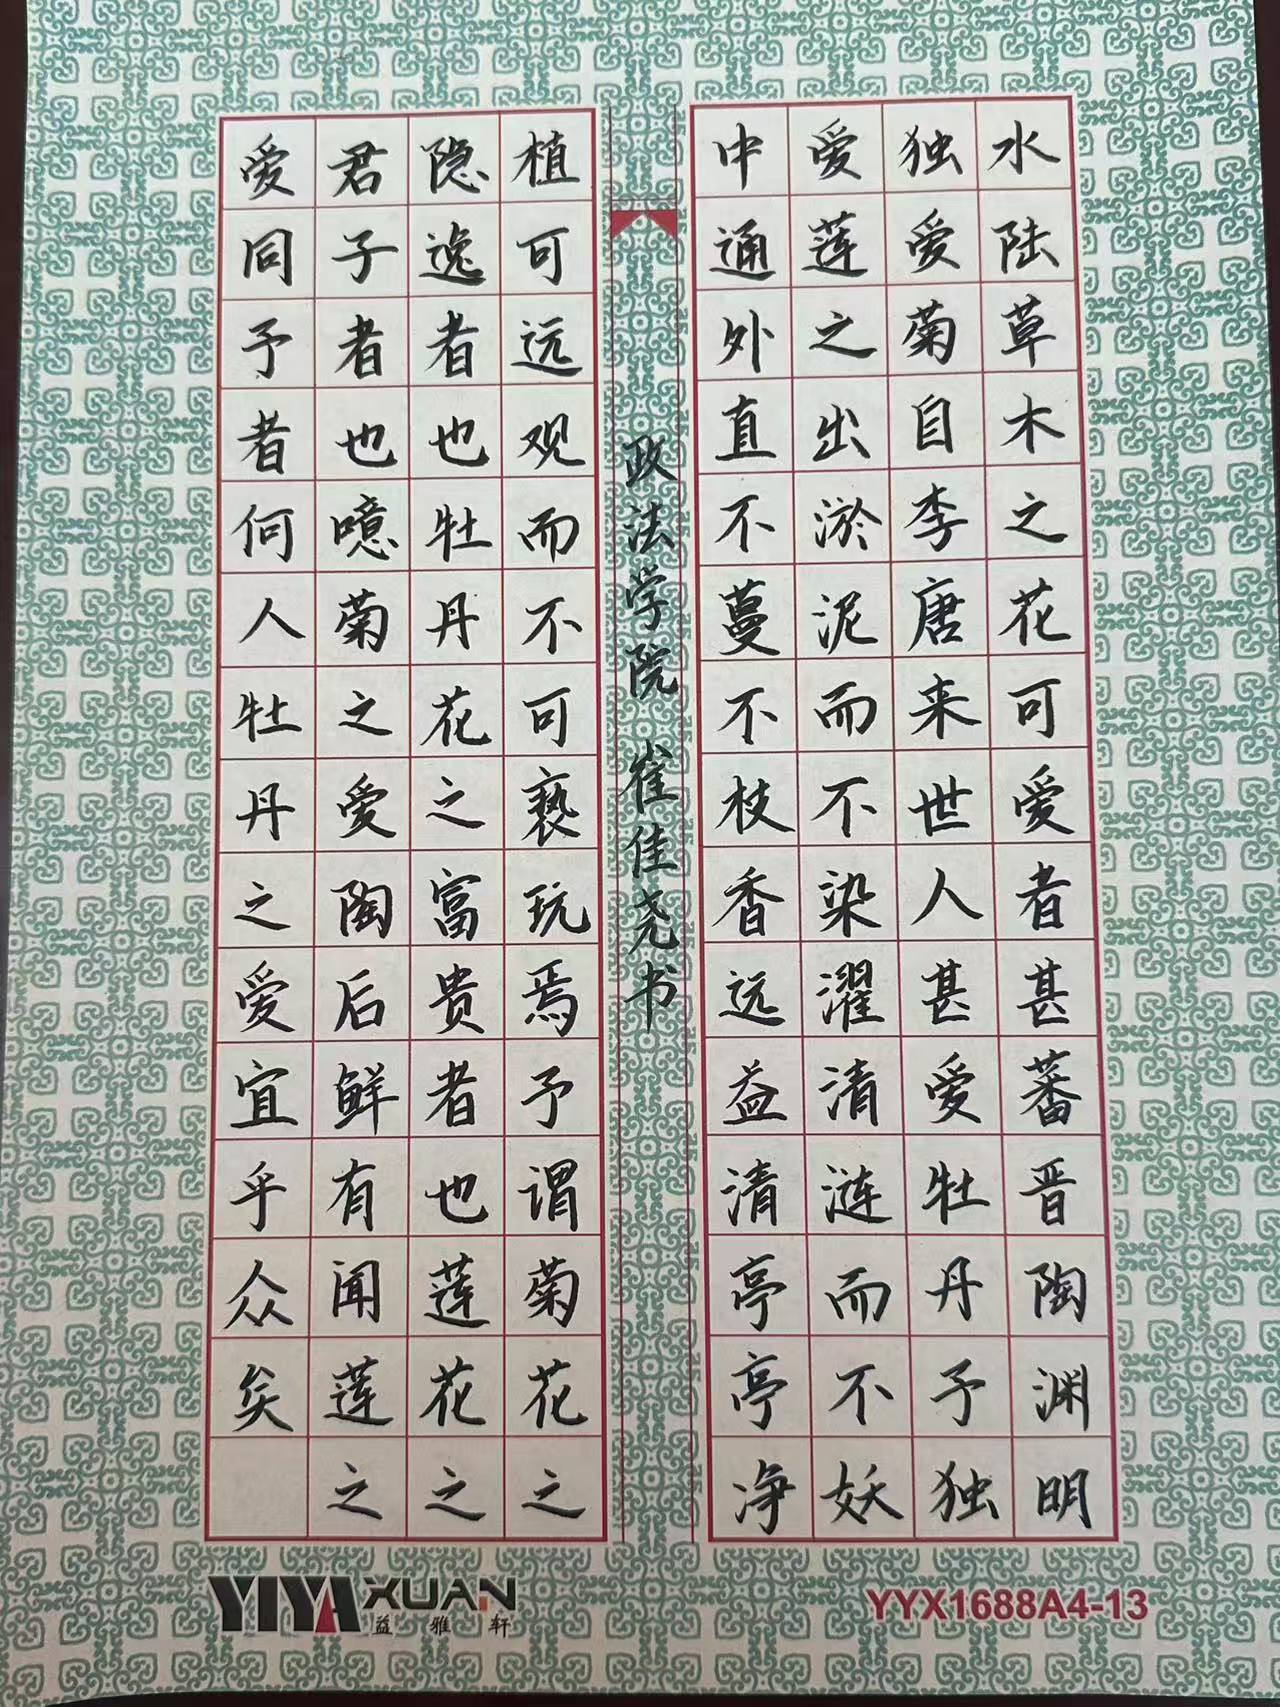 水陆草木之花可爱者甚蕃晋陶渊明
独爱菊自李唐来世人甚爱牡丹予独
爱莲之出淤泥而不染濯清涟而不妖
中通外直不蔓不枝香远益清亭亭净
植可远观而不可亵玩焉予谓菊花之
隐逸者也牡丹花之富贵者也莲花之
君子者也噫菊之爱陶后鲜有闻莲之
爱同予者何人牡丹之爱宜乎众矣
政法学院 崔佳尧书
YIYAXUAN
益雅轩
YYX1688A4-13